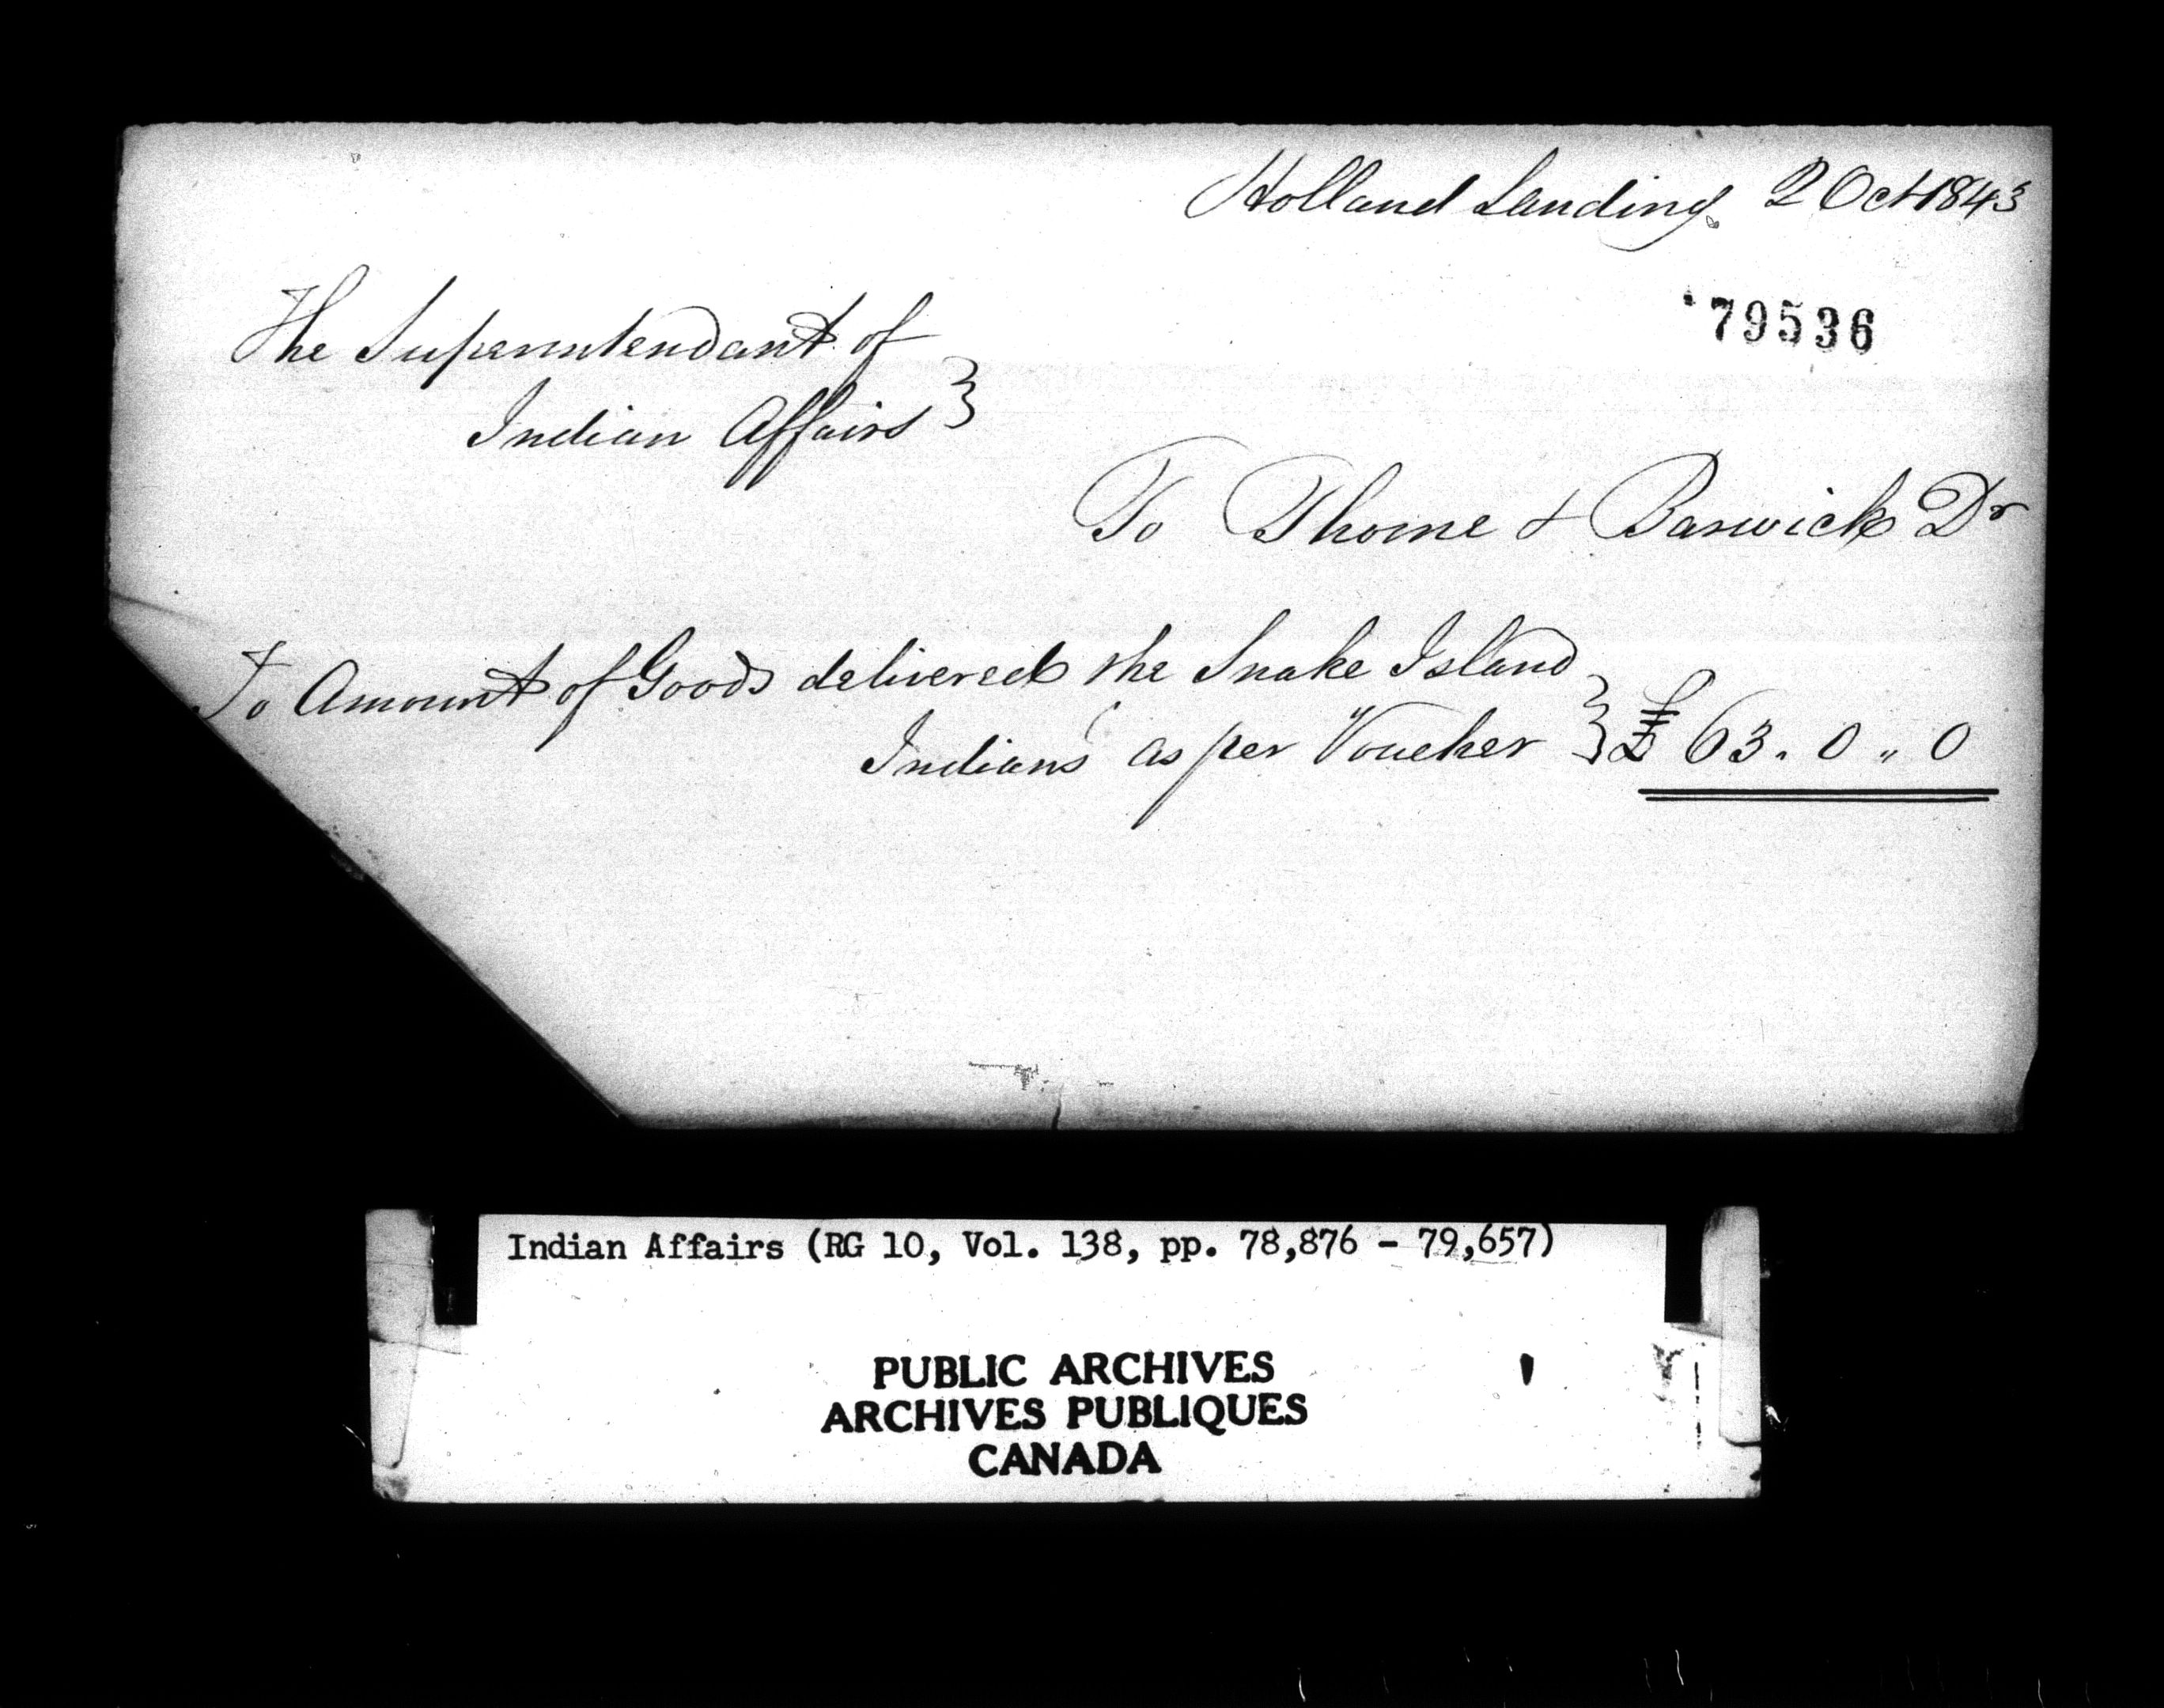 Holland Landing 2 Oct 1843
79536
The Superintendant of
Indian Affairs }
To Thorne & Barwick Dr
To Amount of Goods delivered the Snake Island
Indians as per Voucher } £ 63. 0 „ 0
Indian Affairs (RG 10, Vol. 138, pp. 78,876 - 79,657)
PUBLIC ARCHIVES
ARCHIVES PUBLIQUES
CANADA